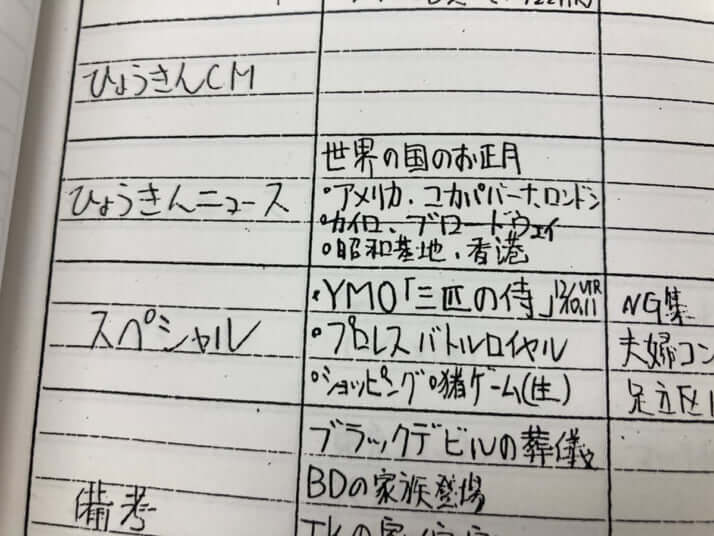 ひょうきんCM
世界の国のお正月
ひょうきんニュース
・アメリカ、コカパバーナ、ロンドン
・カイロ、ブロードウェイ
・昭和基地、香港
・YMO「三匹の侍」12/10.11 VTR
NG集
スペシャル
・プロレスバトルロイヤル
夫婦コン
・ショッピング・猪ゲーム(生)
足立区
ブラックデビルの葬儀
備考
BDの家族登場